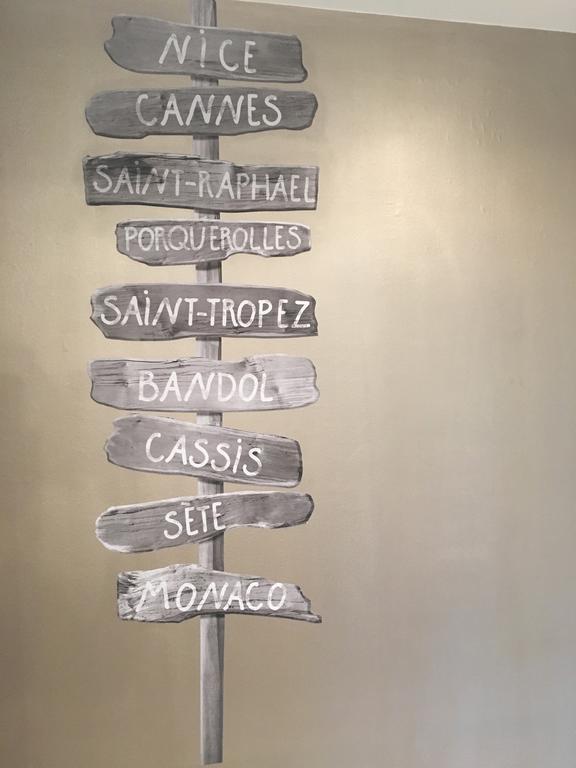 NiCE
CANNES
SAiNT-RAPHAEL
PORQUEROLLES
SAiNT-TROPEZ
BANDOL
CASSiS
SÈTE
MONACO